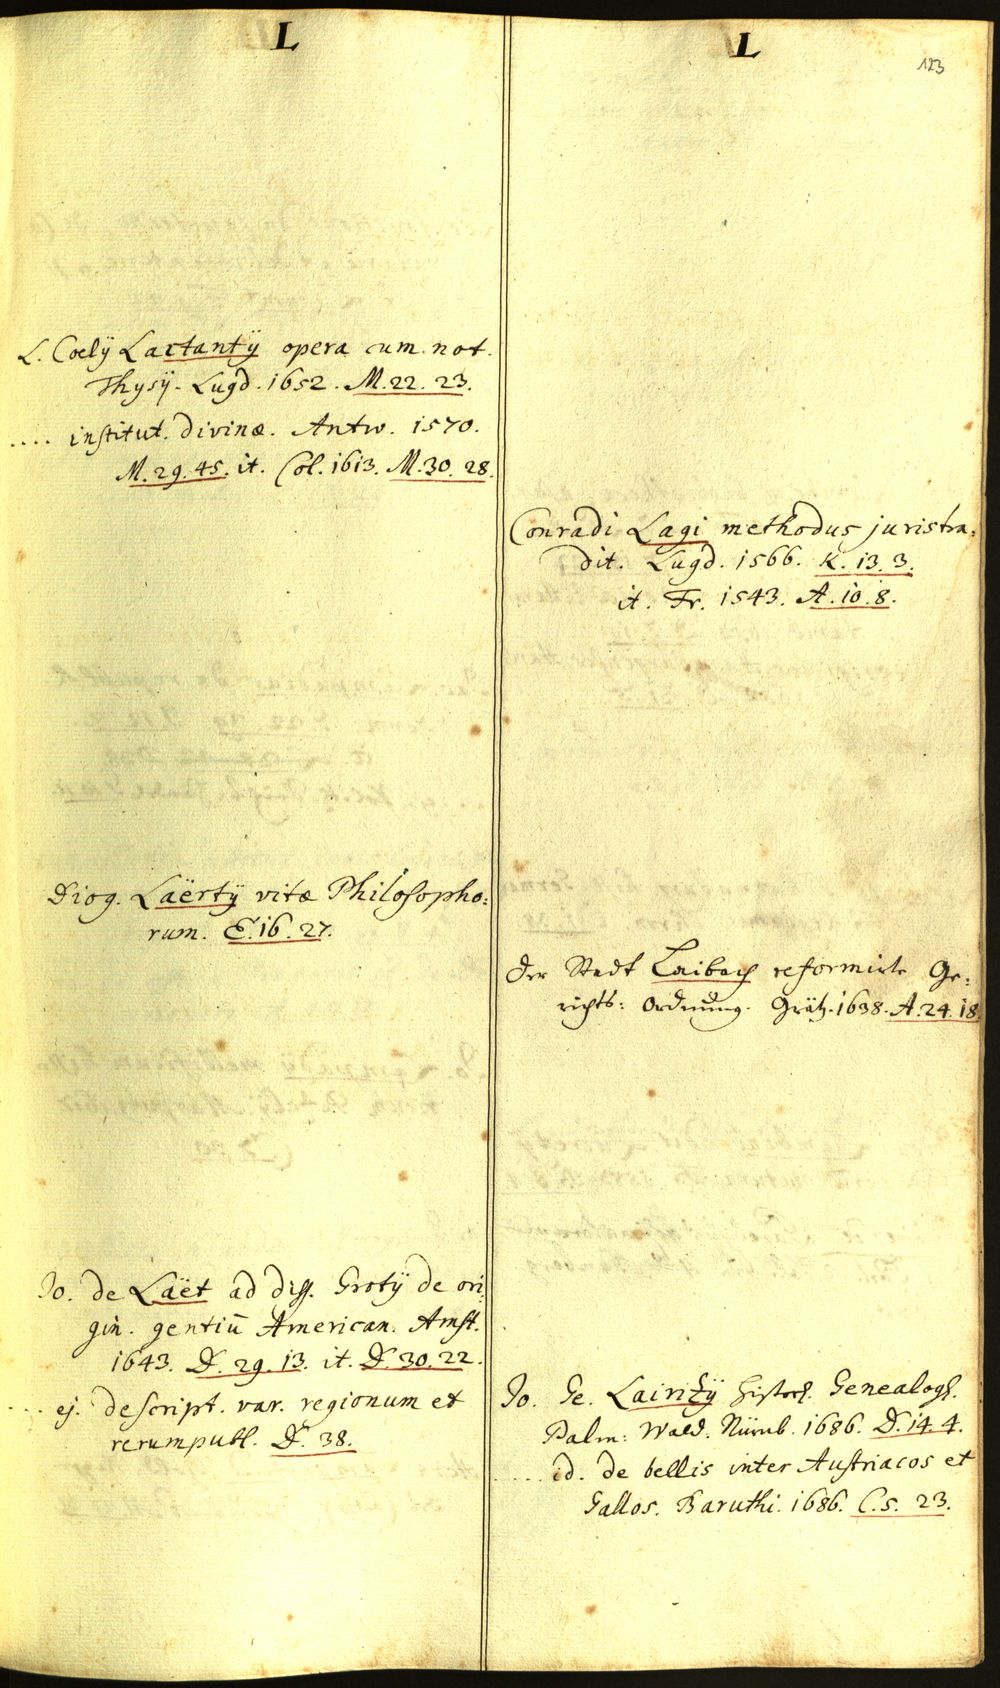 L
L. Coelÿ Lactantÿ opera cum. not.
Thysÿ. Lugd. 1652. M. 22. 23.
.... institut. divinæ. Antw. 1570.
M. 29. 45. it. Col. 1613. M. 30. 28.
Diog. Laërtÿ vitæ Philosopho:
rum. E. 16. 27.
Jo. de Laët ad diss. Grotÿ de ori
gin. gentiū American. Amst.
1643. D. 29. 13. it. D. 30. 22.
... ej. descript. var. regionum et
rerumpubl. D. 38.
L
123
Conradi Lagi methodus juris tra:
dit. Lugd. 1566. K. 13. 3.
it. Fr. 1543. A. 10. 8.
Der Stadt Laibach reformirte Ge:
richts: Ordnung. Grätz. 1638. A. 24. 18.
Jo. Ge. Lairitzÿ histor. Genealog.
Palm: Wald. Nürnb. 1686. D. 14. 4.
.... id. de bellis inter Austriacos et
Gallos. Baruthi. 1686. C. 5. 23.